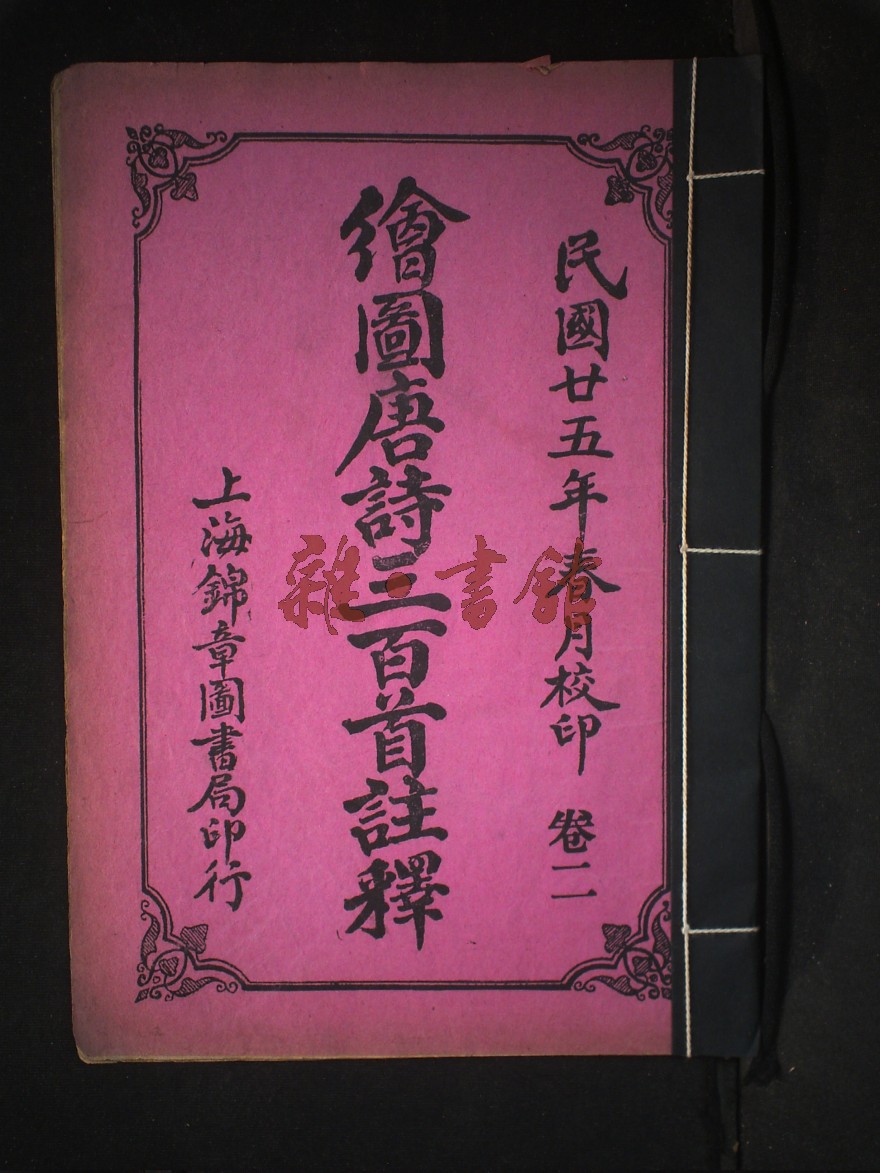 民國廿五年春月校印 卷二
繪圖唐詩三百首註釋
上海錦章圖書局印行
雜·書館